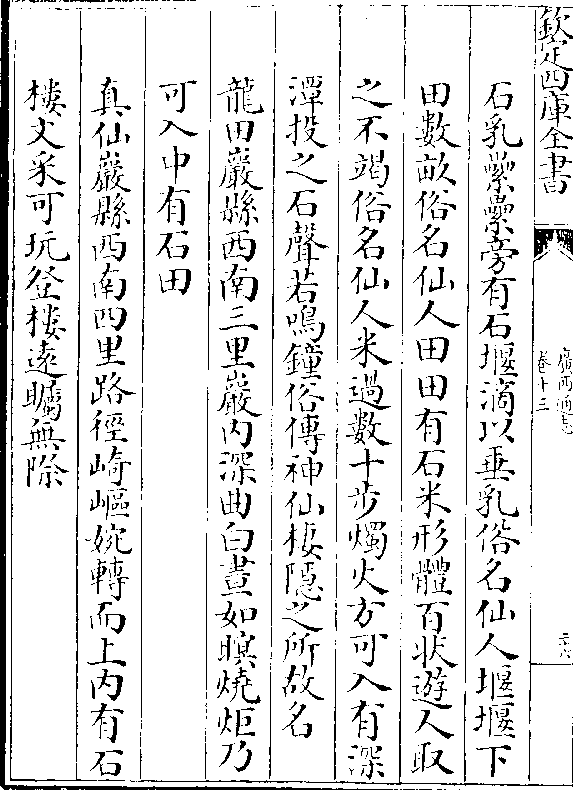 欽定四庫全書
廣西通志
卷十三
三六
石乳纍纍旁有石堰滴以垂乳俗名仙人堰堰下
田數畝俗名仙人田田有石米形體百狀遊人取
之不竭俗名仙人米過數十步燭火方可入有深
潭投之石聲若鳴鐘俗傳神仙棲隱之所故名
龍田巖縣西南三里巖内深曲白晝如暝燒炬乃
可入中有石田
真仙巖縣西南四里路徑崎嶇婉轉而上内有石
樓文采可玩登樓遠矚無際